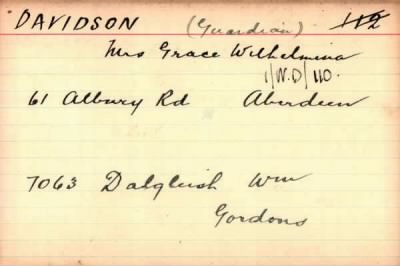 DAVIDSON (Guardian) 112
Mrs Grace Wilhelmina
1/W.D/110.
61 Albury Rd Aberdeen
7063 Dalgleish Wm
Gordons